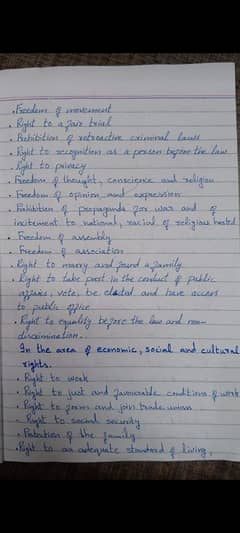 . Freedom of movement
. Right to a fair trial
. Prohibition of retroactive criminal laws
. Right to recognition as a person before the law
. Right to privacy
. Freedom of thought, conscience and religion
. Freedom of opinion and expression
. Prohibition of propaganda for war and of
incitement to national, racial of religious hatred
. Freedom of assembly
. Freedom of association
. Right to marry and found a family
. Right to take part in the conduct of public
affairs, vote, be elected and have access
to public office
. Right to equality before the law and non-
discrimination.
In the area of economic, social and cultural
rights.
. Right to work
. Right to just and favourable conditions of work
. Right to form and join trade union
. Right to social security
. Protection of the family
. Right to an adequate standard of living,